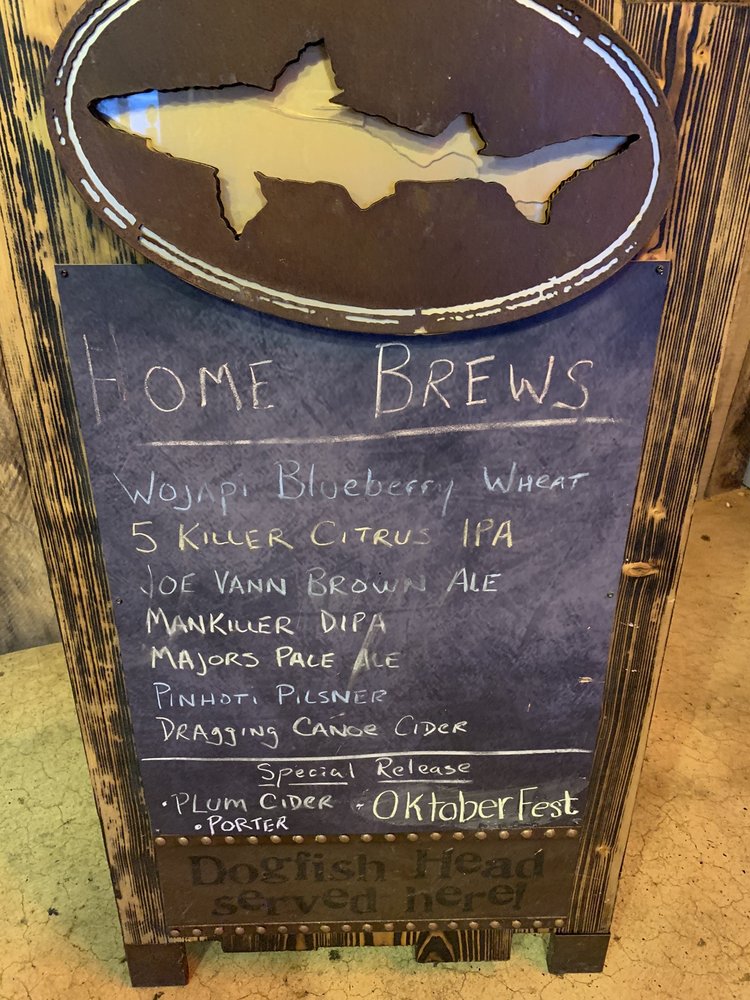 HOME BREWS
WOJAPI Blueberry WHEAT
5 KILLER CITRUS IPA
JOE VANN BROWN ALE
MANKILLER DIPA
MAJORS PALE ALE
PINHOTI PILSNER
DRAGGING CANOE CIDER
Special Release
• PLUM CIDER - OKtoberFest
• PORTER
Dogfish Head
served here!